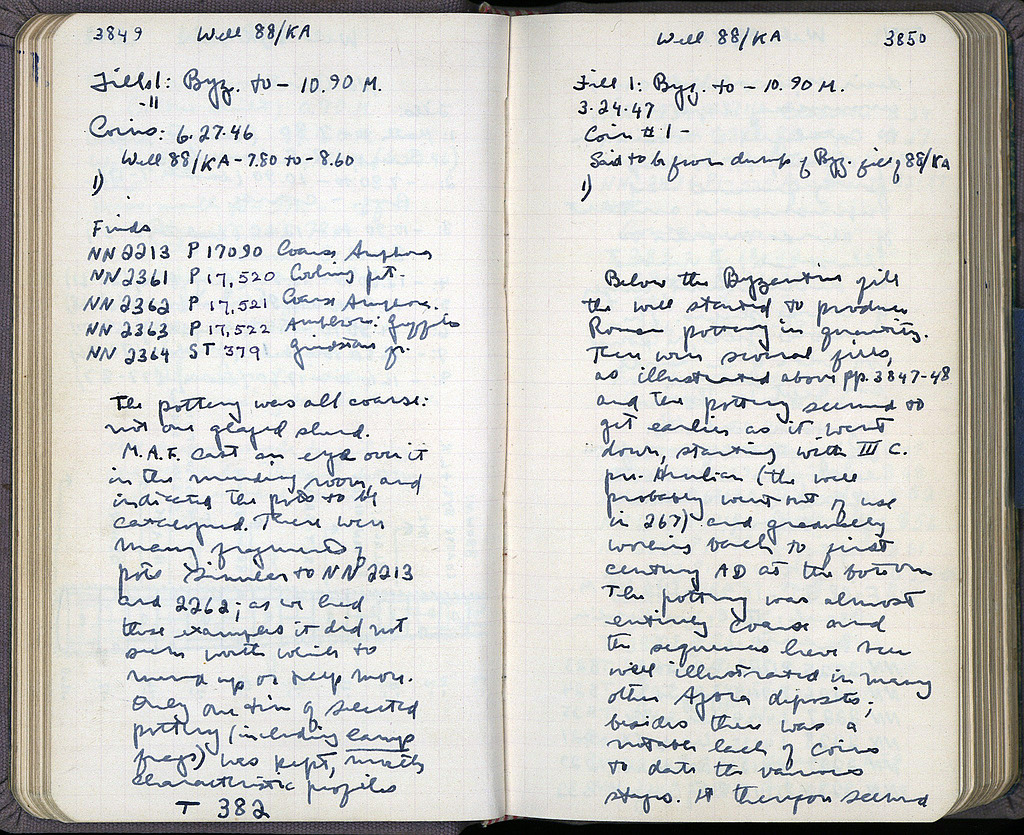 3849 Well 88/KA
Fill 1: Byz. to - 10.90 M.
-11
Coins: 6.27.46
Well 88/KA - 7.80 to - 8.60
1)
Finds
NN 2213 P 17090 Coarse Amphora
NN 2361 P 17,520 Cooking pot.
NN 2362 P 17,521 Coarse Amphora.
NN 2363 P 17,522 Amphora: Graffito
NN 2364 ST 379 Grindstone fr.
The pottery was all coarse:
not one glazed sherd.
M.A.F. cast an eye over it
in the mending room, and
indicated the pots to be
catalogued. There were
many fragments of
pots similar to NN 2213
and 2262; as we had
these examples it did not
seem worth while to
mend up or keep more.
Only one tin of selected
pottery (including lamp
frags) was kept, mostly
characteristic profiles
T 382
Well 88/KA 3850
Fill 1: Byz. to - 10.90 M.
3-24-47
Coin #1 -
Said to be from dump of Byz. fill of 88/KA
1)
Below the Byzantine fill
the well started to produce
Roman pottery in quantity.
There were several fills,
as illustrated above pp. 3847-48
and the pottery seemed to
get earlier as it went
down, starting with III C.
pre-Herulian (the well
probably went out of use
in 267) and gradually
working back to first
century AD at the bottom
The pottery was almost
entirely coarse and
the sequences have been
well illustrated in many
other Agora deposits;
besides there was a
notable lack of coins
to date the various
stages. It therefore seemed